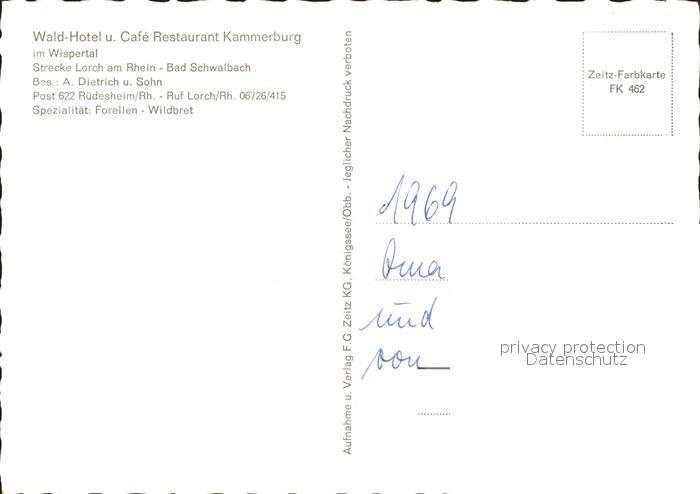 Wald-Hotel u. Café Restaurant Kammerburg
im Wispertal
Strecke Lorch am Rhein - Bad Schwalbach
Bes.: A. Dietrich u. Sohn
Post 622 Rüdesheim/Rh. - Ruf Lorch/Rh. 06726/415
Spezialität: Forellen - Wildbret
Aufnahme u. Verlag F.G. Zeitz KG, Königssee/Obb. - Jeglicher Nachdruck verboten
Zeitz-Farbkarte
FK 462
1969
Oma
und
von
privacy protection
Datenschutz